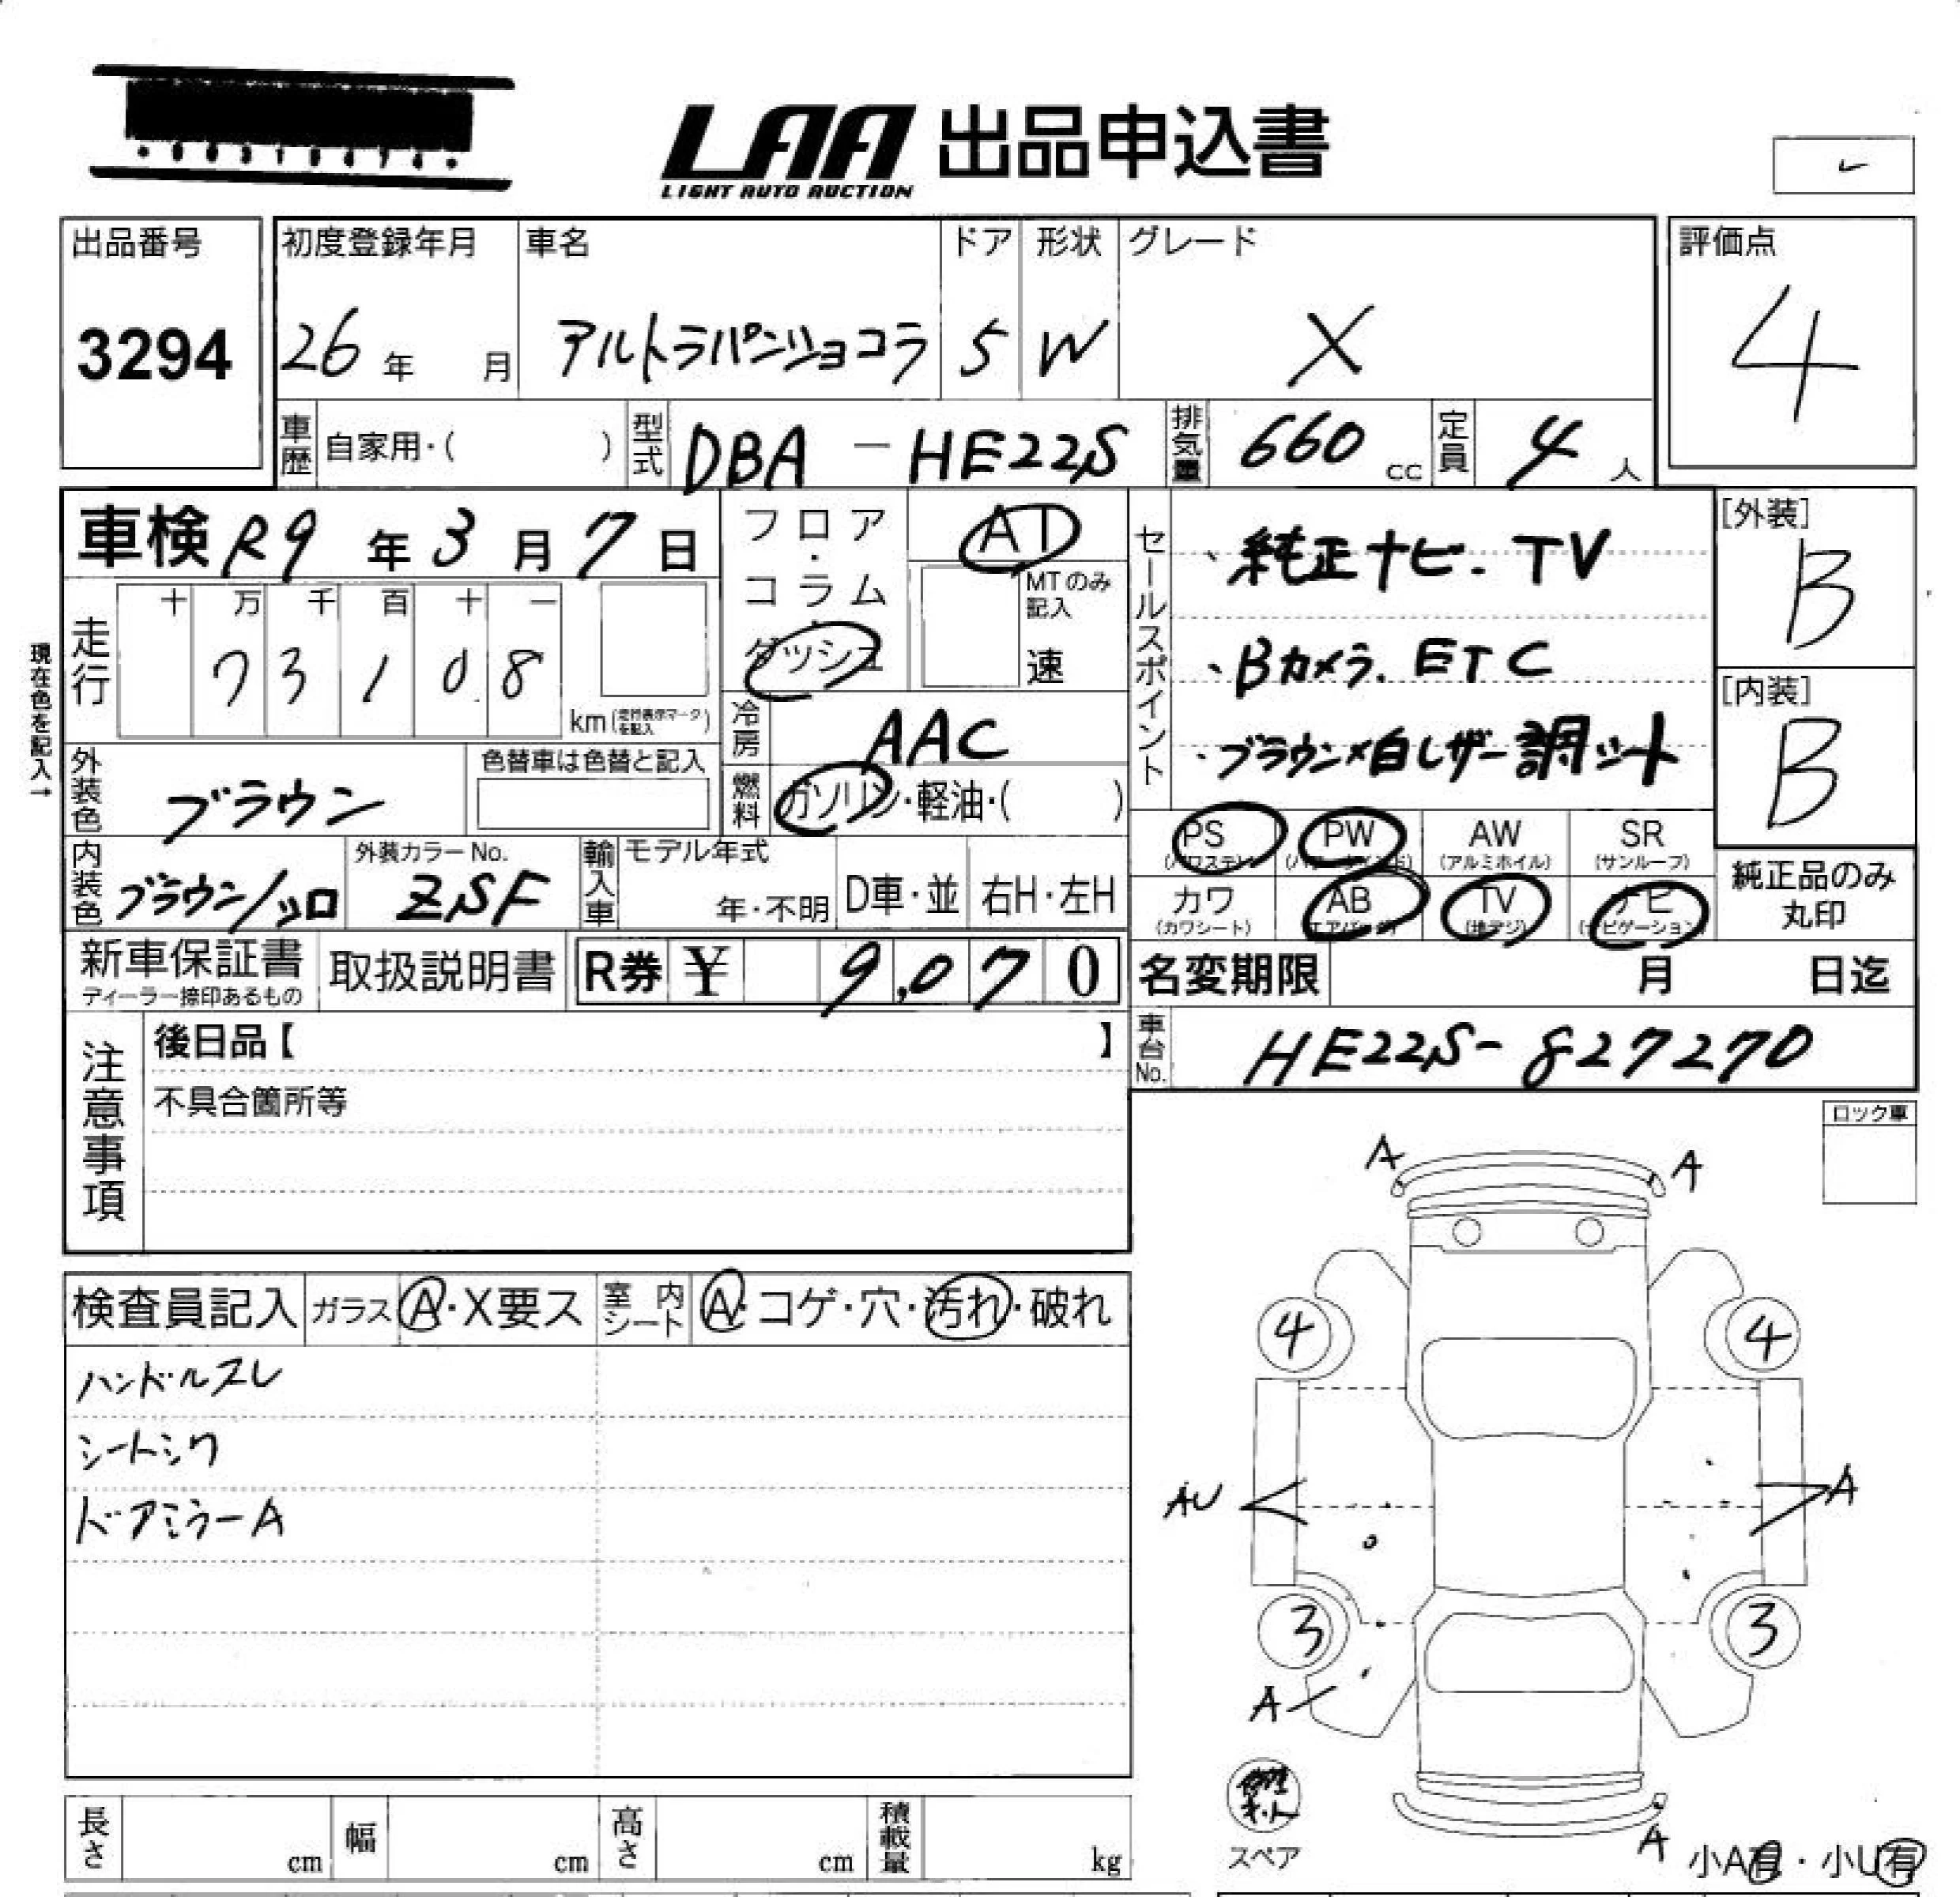 LAA 出品申込書
LIGHT AUTO AUCTION
出品番号
3294
初度登録年月
26年 月
車名
アルトラパンショコラ
ドア
5
形状
W
グレード
X
評価点
4
車歴 自家用・( )
型式 DBA-HE22S
排気量 660 cc
定員 4 人
車検 R9年3月7日
フロア・コラム・ダッシュ
AT
MTのみ記入
速
現在色を記入→
走行
十 万 千 百 十 一
7 3 1 0 8
km (走行表示マークを記入)
冷房 AAC
燃料 ガソリン・軽油・( )
外装色 ブラウン
色替車は色替と記入
内装色 ブラウン/シロ
外装カラーNo.
ZSF
輸入車
モデル年式
年・不明
D車・並
右H・左H
セールスポイント
・純正ナビ.TV
・Bカメラ.ETC
・ブラウン×白レザー調シート
[外装]
B
[内装]
B
PS PW AW SR
(パワステ) (パワーウインド) (アルミホイル) (サンルーフ)
カワ AB TV ナビ
(カワシート) (エアバッグ) (地デジ) (ナビゲーション)
純正品のみ
丸印
新車保証書
ディーラー捺印あるもの
取扱説明書
R券 ¥ 9,070
名変期限 月 日迄
車台No. HE22S-827270
注意事項
後日品【 】
不具合箇所等
ロック車
検査員記入
ガラス A・X要ス
室内シート A・コゲ・穴・汚れ・破れ
ハンドルスレ
シートシワ
ドアミラーA
A A
4 4
AU A
3 3
A
スペア
A
小A有・小U有
長さ cm
幅 cm
高さ cm
積載量 kg